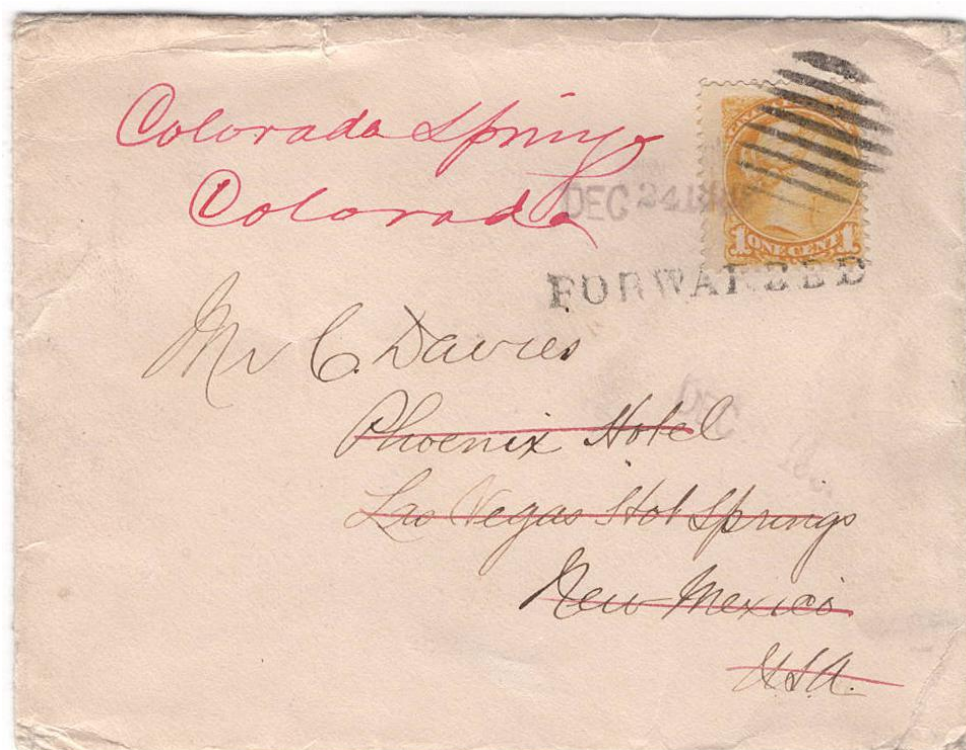 Colorado Springs
Colorado
DEC 24
1 ONE CENT 1
FORWARDED
Mr C. Davies
Phoenix Hotel
Las Vegas Hot Springs
New Mexico
U.S.A.
DEC